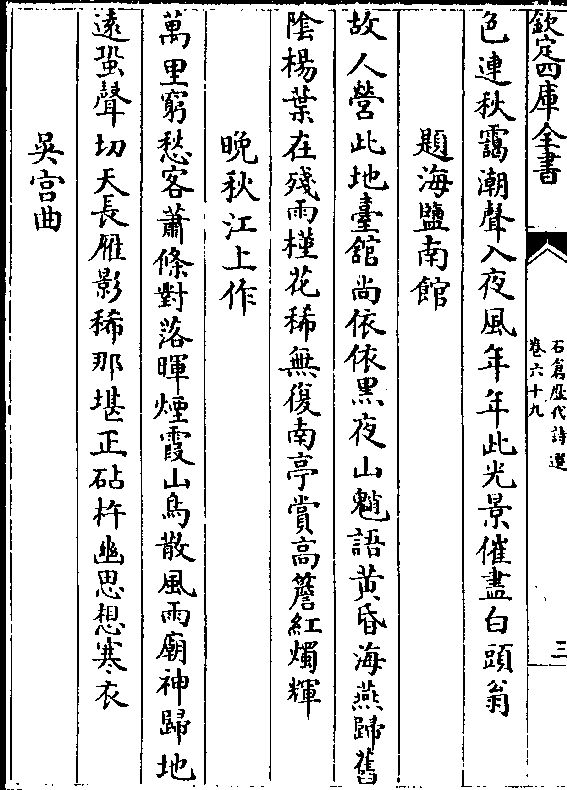 欽定四庫全書
石倉歷代詩選
卷六十九
三
色連秋靄潮聲入夜風年年此光景催盡白頭翁
題海鹽南館
故人營此地臺館尚依依黑夜山魈語黃昏海燕歸舊
陰楊葉在殘雨槿花稀無復南亭賞高簷紅燭輝
晚秋江上作
萬里窮愁客蕭條對落暉煙霞山鳥散風雨廟神歸地
遠蛩聲切天長雁影稀那堪正砧杵幽思想寒衣
吳宮曲